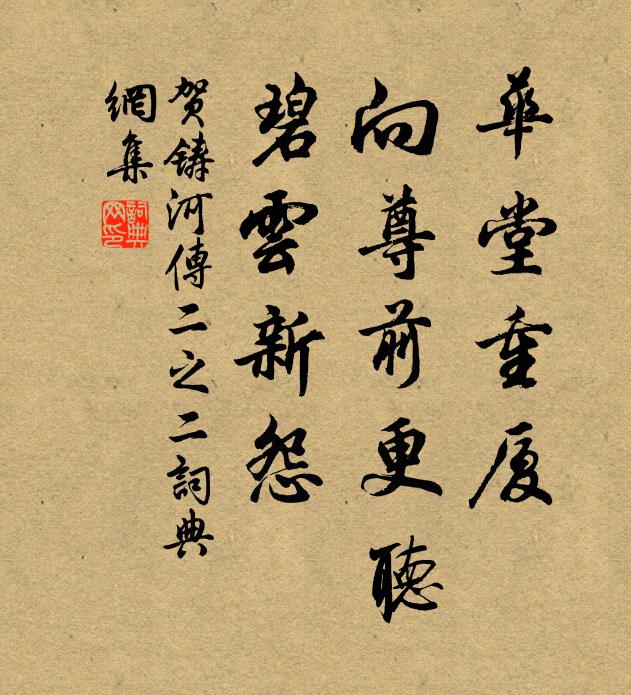 華堂重厦
向尊前更聽
碧雲新怨
賀鑄河傳二之二詞典
網集
詞典
网印